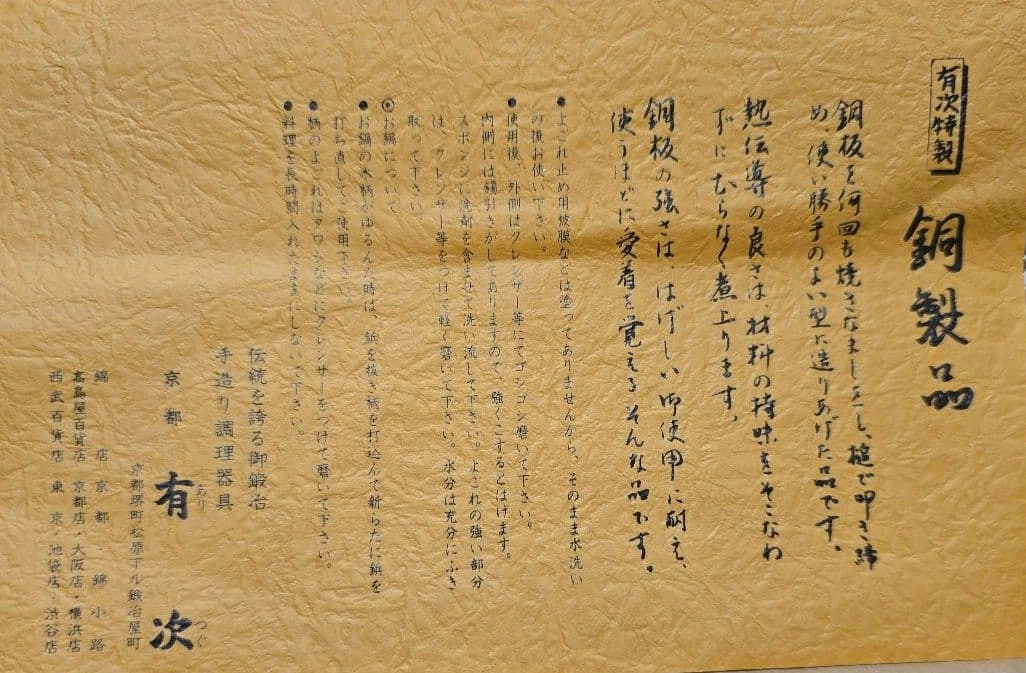 有次特製
銅製品
銅板を何回も焼きなましをし、槌で叩き締
め、使い勝手のよい型に造りあげた品です。
熱伝導の良さは、材料の持味をそこなわ
ずにむらなく煮上ります。
銅板の強さは、はげしい御使用に耐え、
使うほどに愛着を覚えるそんな品です。
●よごれ止め用被膜などは塗ってありませんから、そのまま水洗い
の後お使い下さい。
●使用後、外側はクレンザー等にてゴシゴシ磨いて下さい。
内側には錫引きがしてありますので、強くこするとはげます。
スポンジに洗剤を含ませて洗い流して下さい。よごれの強い部分
は、クレンザー等をつけて軽く磨いて下さい。水分は充分にふき
取って下さい。
◉お鍋について
●お鍋の木柄がゆるんだ時は、鋲を抜き柄を打込んで新らたに鋲を
打ち直してご使用下さい。
●柄のよごれはタワシなどにクレンザーをつけて磨いて下さい。
●料理を長時間入れたままにしないで下さい。
伝統を誇る御鍛冶
手造り調理器具
京都 有次
あり つぐ
京都堺町松原下ル鍛冶屋町
錦店 京都・錦小路
高島屋百貨店 京都店・大阪店・横浜店
西武百貨店 東京・池袋店・渋谷店